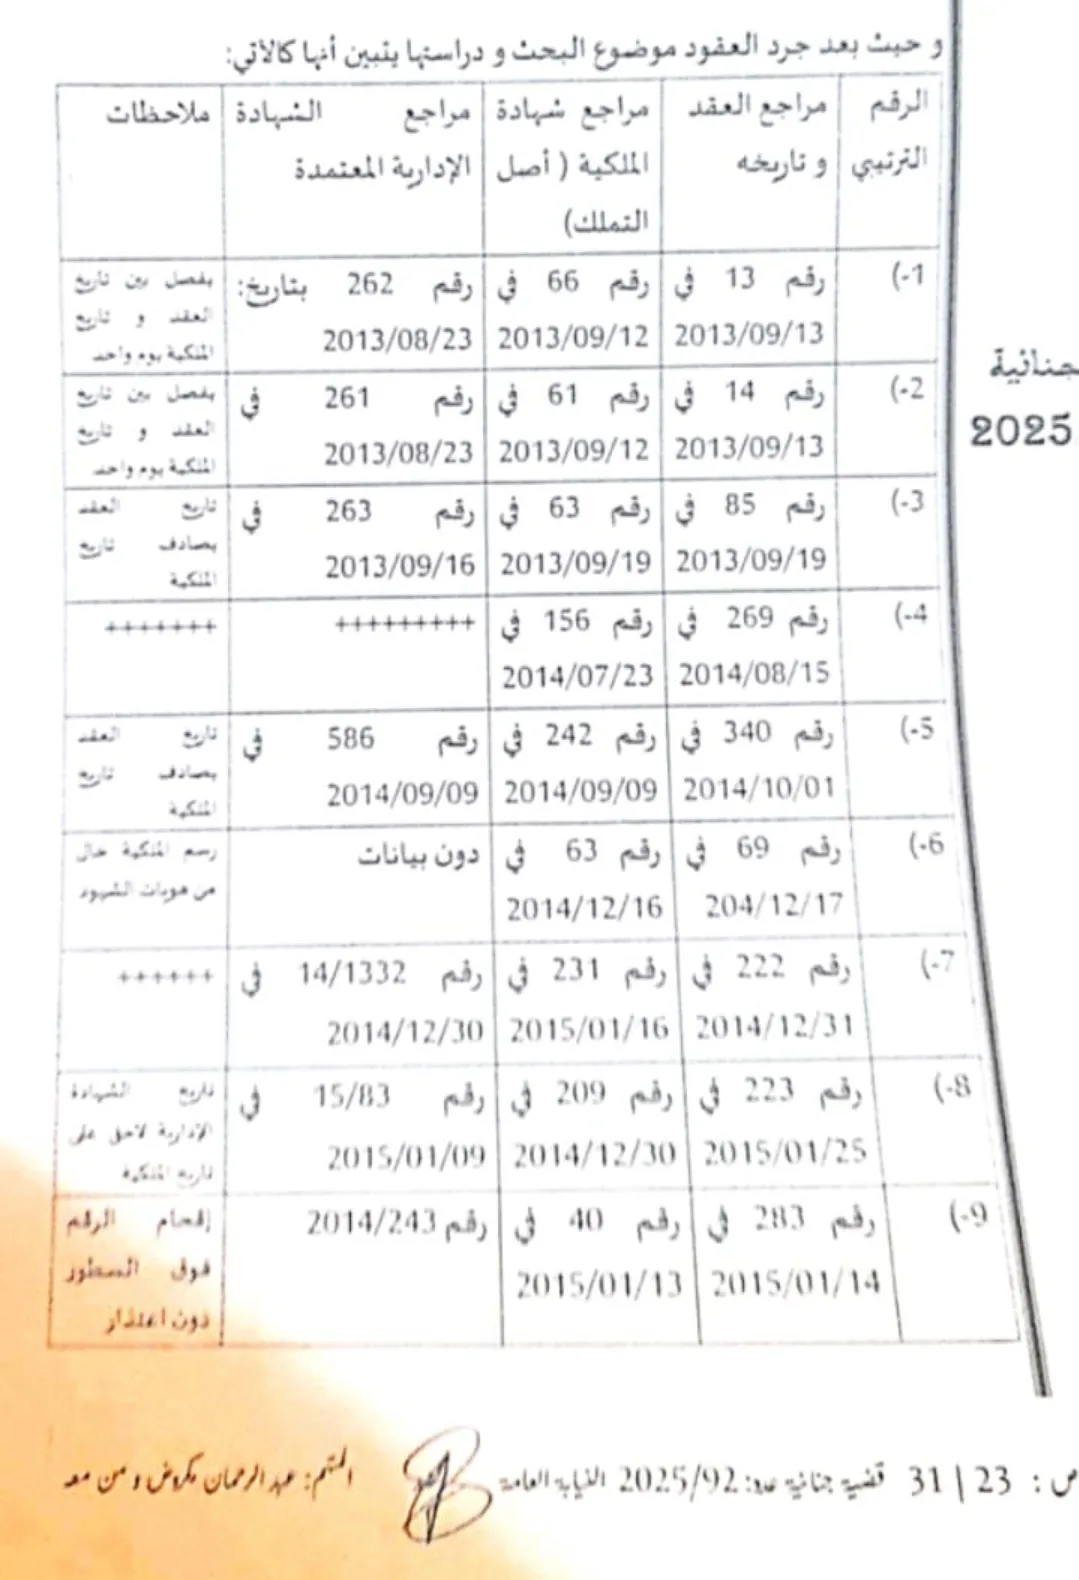 و حيث بعد جرد العقود موضوع البحث و دراستها يتبين أنها كالآتي:
الرقم الترتيبي | مراجع العقد و تاريخه | مراجع شهادة الملكية ( أصل التملك) | مراجع الشهادة الإدارية المعتمدة | ملاحظات
1-) | رقم 13 في 2013/09/13 | رقم 66 في 2013/09/12 | رقم 262 بتاريخ: 2013/08/23 | يفصل بين تاريخ العقد و تاريخ الملكية يوم واحد
2-) | رقم 14 في 2013/09/13 | رقم 61 في 2013/09/12 | رقم 261 في 2013/08/23 | يفصل بين تاريخ العقد و تاريخ الملكية يوم واحد
3-) | رقم 85 في 2013/09/19 | رقم 63 في 2013/09/19 | رقم 263 في 2013/09/16 | تاريخ العقد يصادف تاريخ الملكية
4-) | رقم 269 في 2014/08/15 | رقم 156 في 2014/07/23 | +++++++++ | +++++++
5-) | رقم 340 في 2014/10/01 | رقم 242 في 2014/09/09 | رقم 586 في 2014/09/09 | تاريخ العقد يصادف تاريخ الملكية
6-) | رقم 69 في 204/12/17 | رقم 63 في 2014/12/16 | دون بيانات | رسم الملكية خال من هويات الشهود
7-) | رقم 222 في 2014/12/31 | رقم 231 في 2015/01/16 | رقم 14/1332 في 2014/12/30 | ++++++
8-) | رقم 223 في 2015/01/25 | رقم 209 في 2014/12/30 | رقم 15/83 في 2015/01/09 | تاريخ الشهادة الإدارية لاحق على تاريخ الملكية
9-) | رقم 283 في 2015/01/14 | رقم 40 في 2015/01/13 | رقم 2014/243 | إقحام الرقم فوق السطور دون اعتذار
جنائية
2025
ص : 23 | 31 قضية جنائية عدد: 2025/92 النيابة العامة المتهم: عبد الرحمان مكروض ومن معه